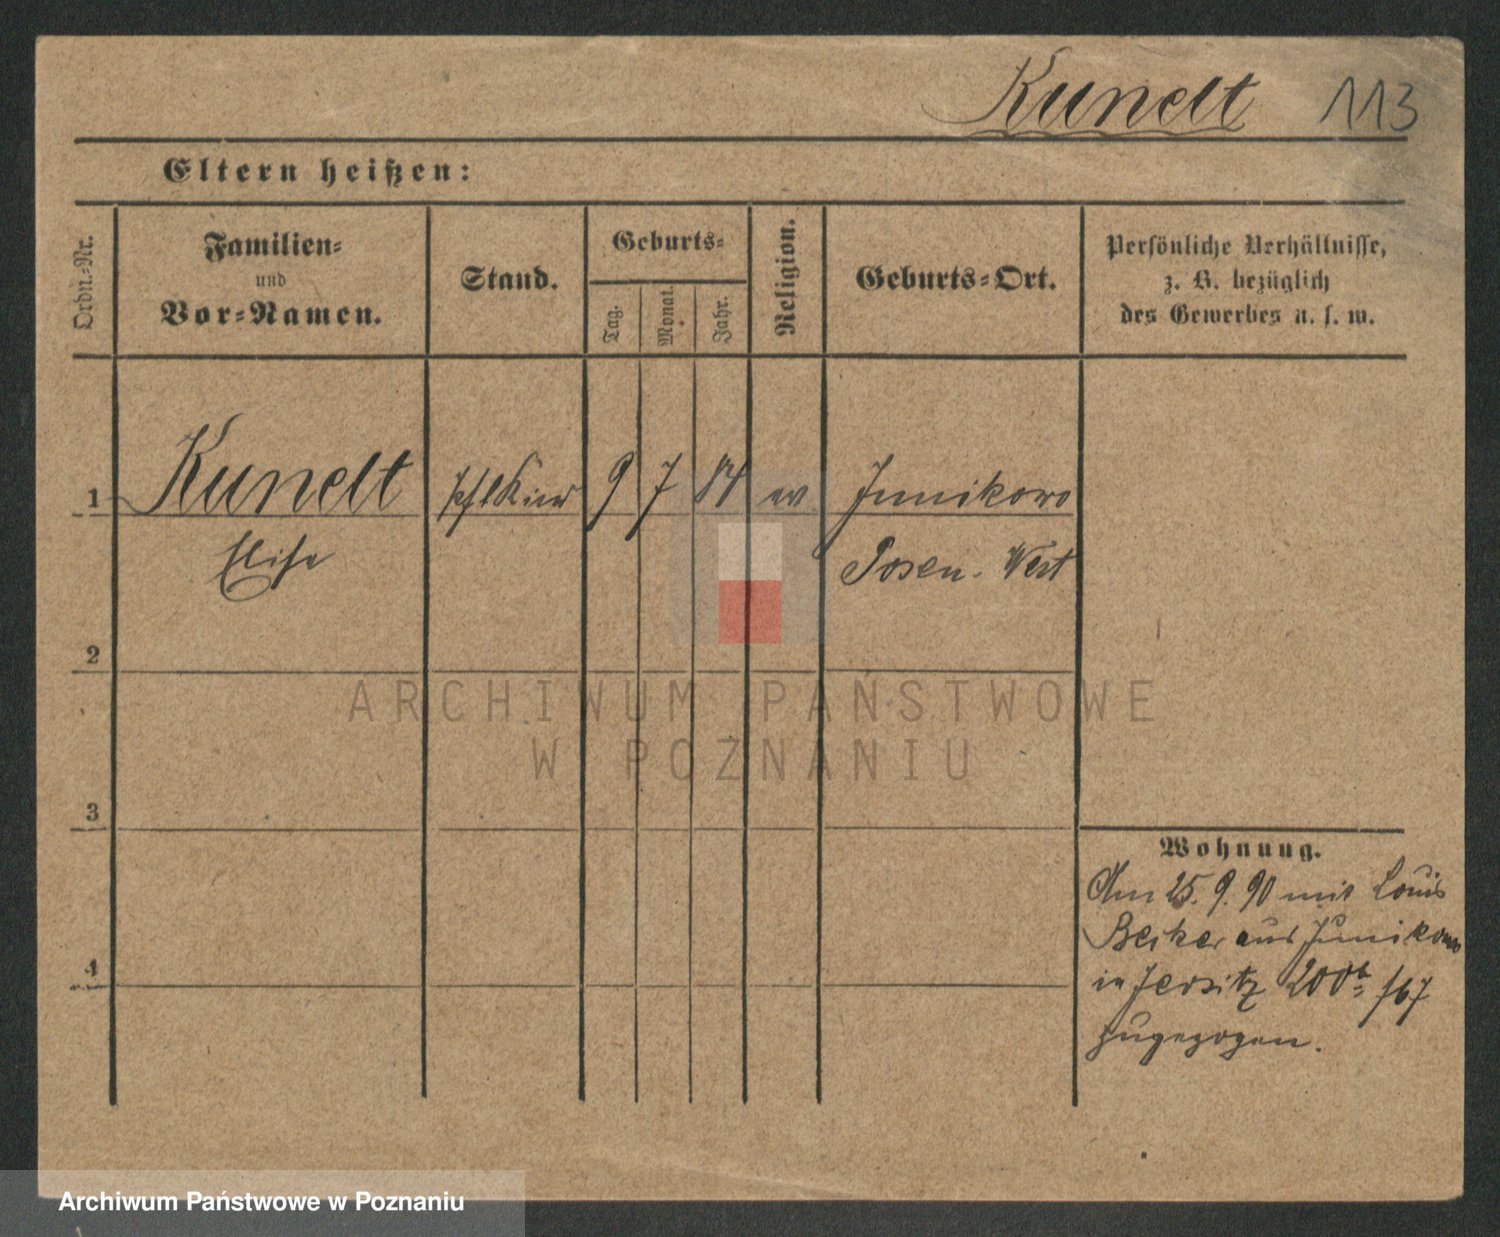 Kunelt 113
Eltern heißen:
Ordn.=Nr.
Familien=
und
Vor=Namen.
Stand.
Geburts=
Tag.
Monat.
Jahr.
Religion.
Geburts=Ort.
Persönliche Verhältnisse,
z. B. bezüglich
des Gewerbes u. s. w.
1 Kunelt 9 7 84 ev Junikowo
Elise Posen. West
2
3
4
Wohnung.
Am 25. 9. 90 mit Louis
Becker aus Junikowo
in Jersitz 200b /67
zugezogen.
ARCHIWUM PAŃSTWOWE
W POZNANIU
Archiwum Państwowe w Poznaniu